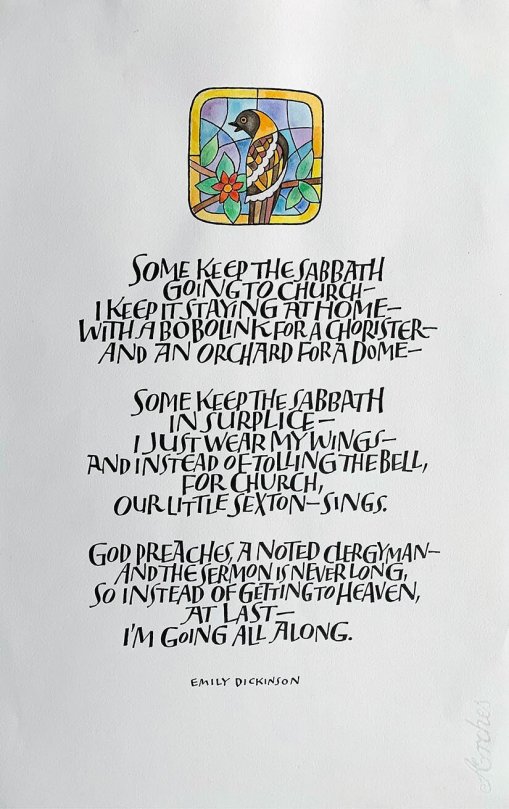 SOME KEEP THE SABBATH
GOING TO CHURCH–
I KEEP IT STAYING AT HOME–
WITH A BOBOLINK FOR A CHORISTER–
AND AN ORCHARD FOR A DOME–
SOME KEEP THE SABBATH
IN SURPLICE–
I JUST WEAR MY WINGS–
AND INSTEAD OF TOLLING THE BELL,
FOR CHURCH,
OUR LITTLE SEXTON–SINGS.
GOD PREACHES, A NOTED CLERGYMAN–
AND THE SERMON IS NEVER LONG,
SO INSTEAD OF GETTING TO HEAVEN,
AT LAST–
I'M GOING ALL ALONG.
EMILY DICKINSON